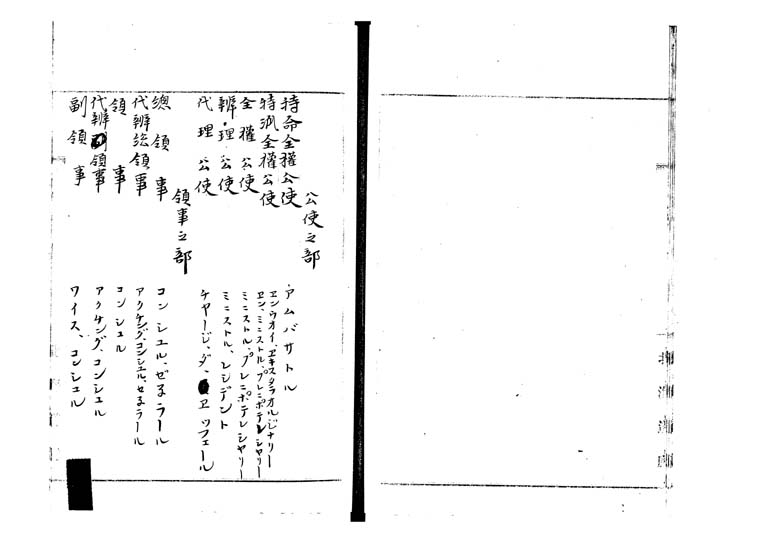 公使之部
特命全權公使 アムバサトル
特派全權公使 エンウオイ、エキスタラオルジナリー
エン、ミニストル、プレニポテレシヤリー
全權公使 ミニストル、プレニポテレシヤリー
辨理公使 ミニストル、レシデント
代理公使 チヤージ、ダ、エツフェール
領事之部
總領事 コンシユル、ゼネラール
代辨總領事 アクチング、コンシユル、ゼネラール
領事 コンシユル
代辨領事 アクチング、コンシユル
副領事 ワイス、コンシユル